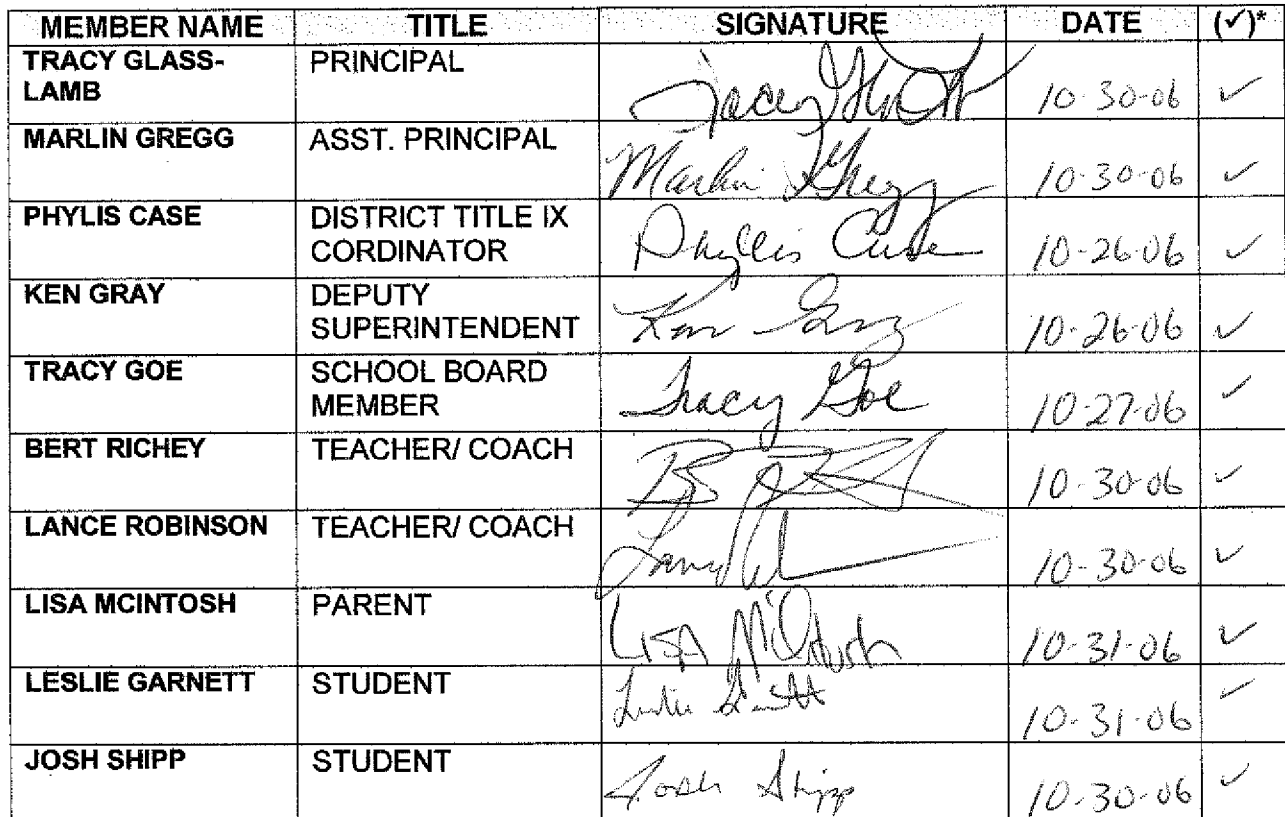 MEMBER NAME TITLE SIGNATURE DATE (✓)*
TRACY GLASS- PRINCIPAL
LAMB Tracey 10-30-06 ✓
MARLIN GREGG ASST. PRINCIPAL
Marlin Gregg 10-30-06 ✓
PHYLIS CASE DISTRICT TITLE IX
CORDINATOR Phyllis Case 10-26-06 ✓
KEN GRAY DEPUTY
SUPERINTENDENT Ken Gray 10-26-06 ✓
TRACY GOE SCHOOL BOARD
MEMBER Tracy Goe 10-27-06 ✓
BERT RICHEY TEACHER/ COACH
10-30-06 ✓
LANCE ROBINSON TEACHER/ COACH
10-30-06 ✓
LISA MCINTOSH PARENT
LISA McIntosh 10-31-06 ✓
LESLIE GARNETT STUDENT
Leslie Garnett 10-31-06 ✓
JOSH SHIPP STUDENT
Josh Shipp 10-30-06 ✓